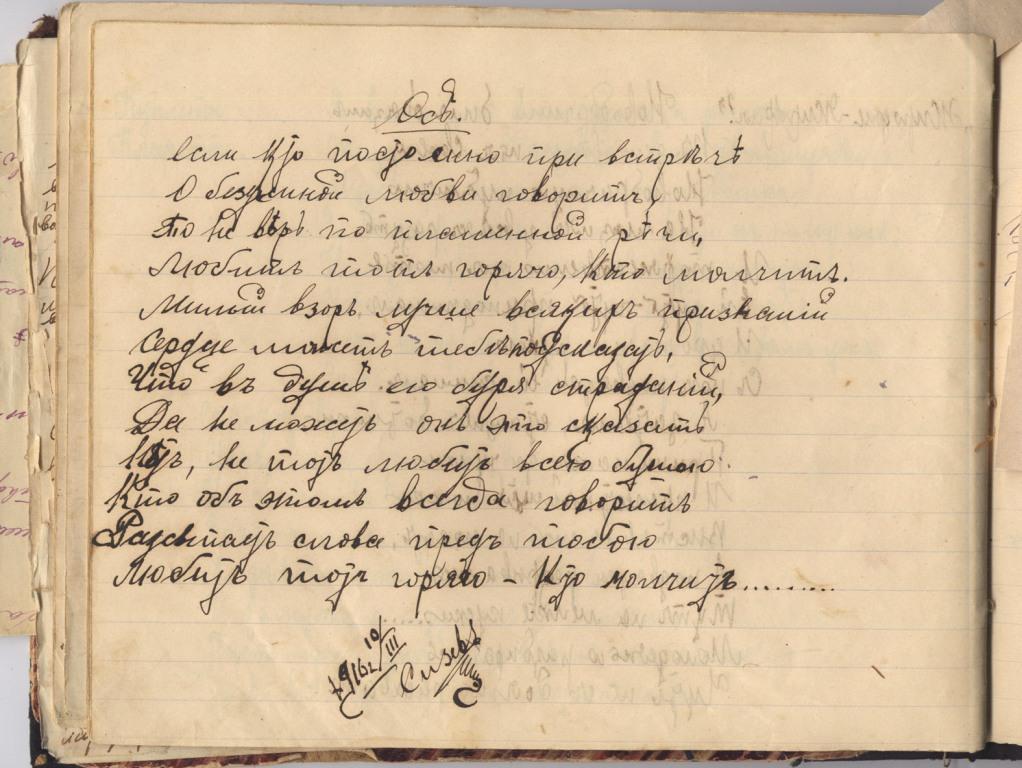 Если кто постоянно при встрѣчѣ
О безумной любви говоритъ,
То не вѣрь по пламенной рѣчи,
Любитъ тотъ горячо, кто молчитъ.
Милый взоръ лучше всякихъ признаній
Сердце можетъ тебѣ подсказать,
Что въ душѣ его буря страданій,
Да не можетъ онъ это сказать
Нѣтъ, не тотъ любитъ всею душою
Кто объ этомъ всегда говоритъ
Разсыпаетъ слова предъ тобою
Любитъ тотъ горячо – кто молчитъ.........
10/III